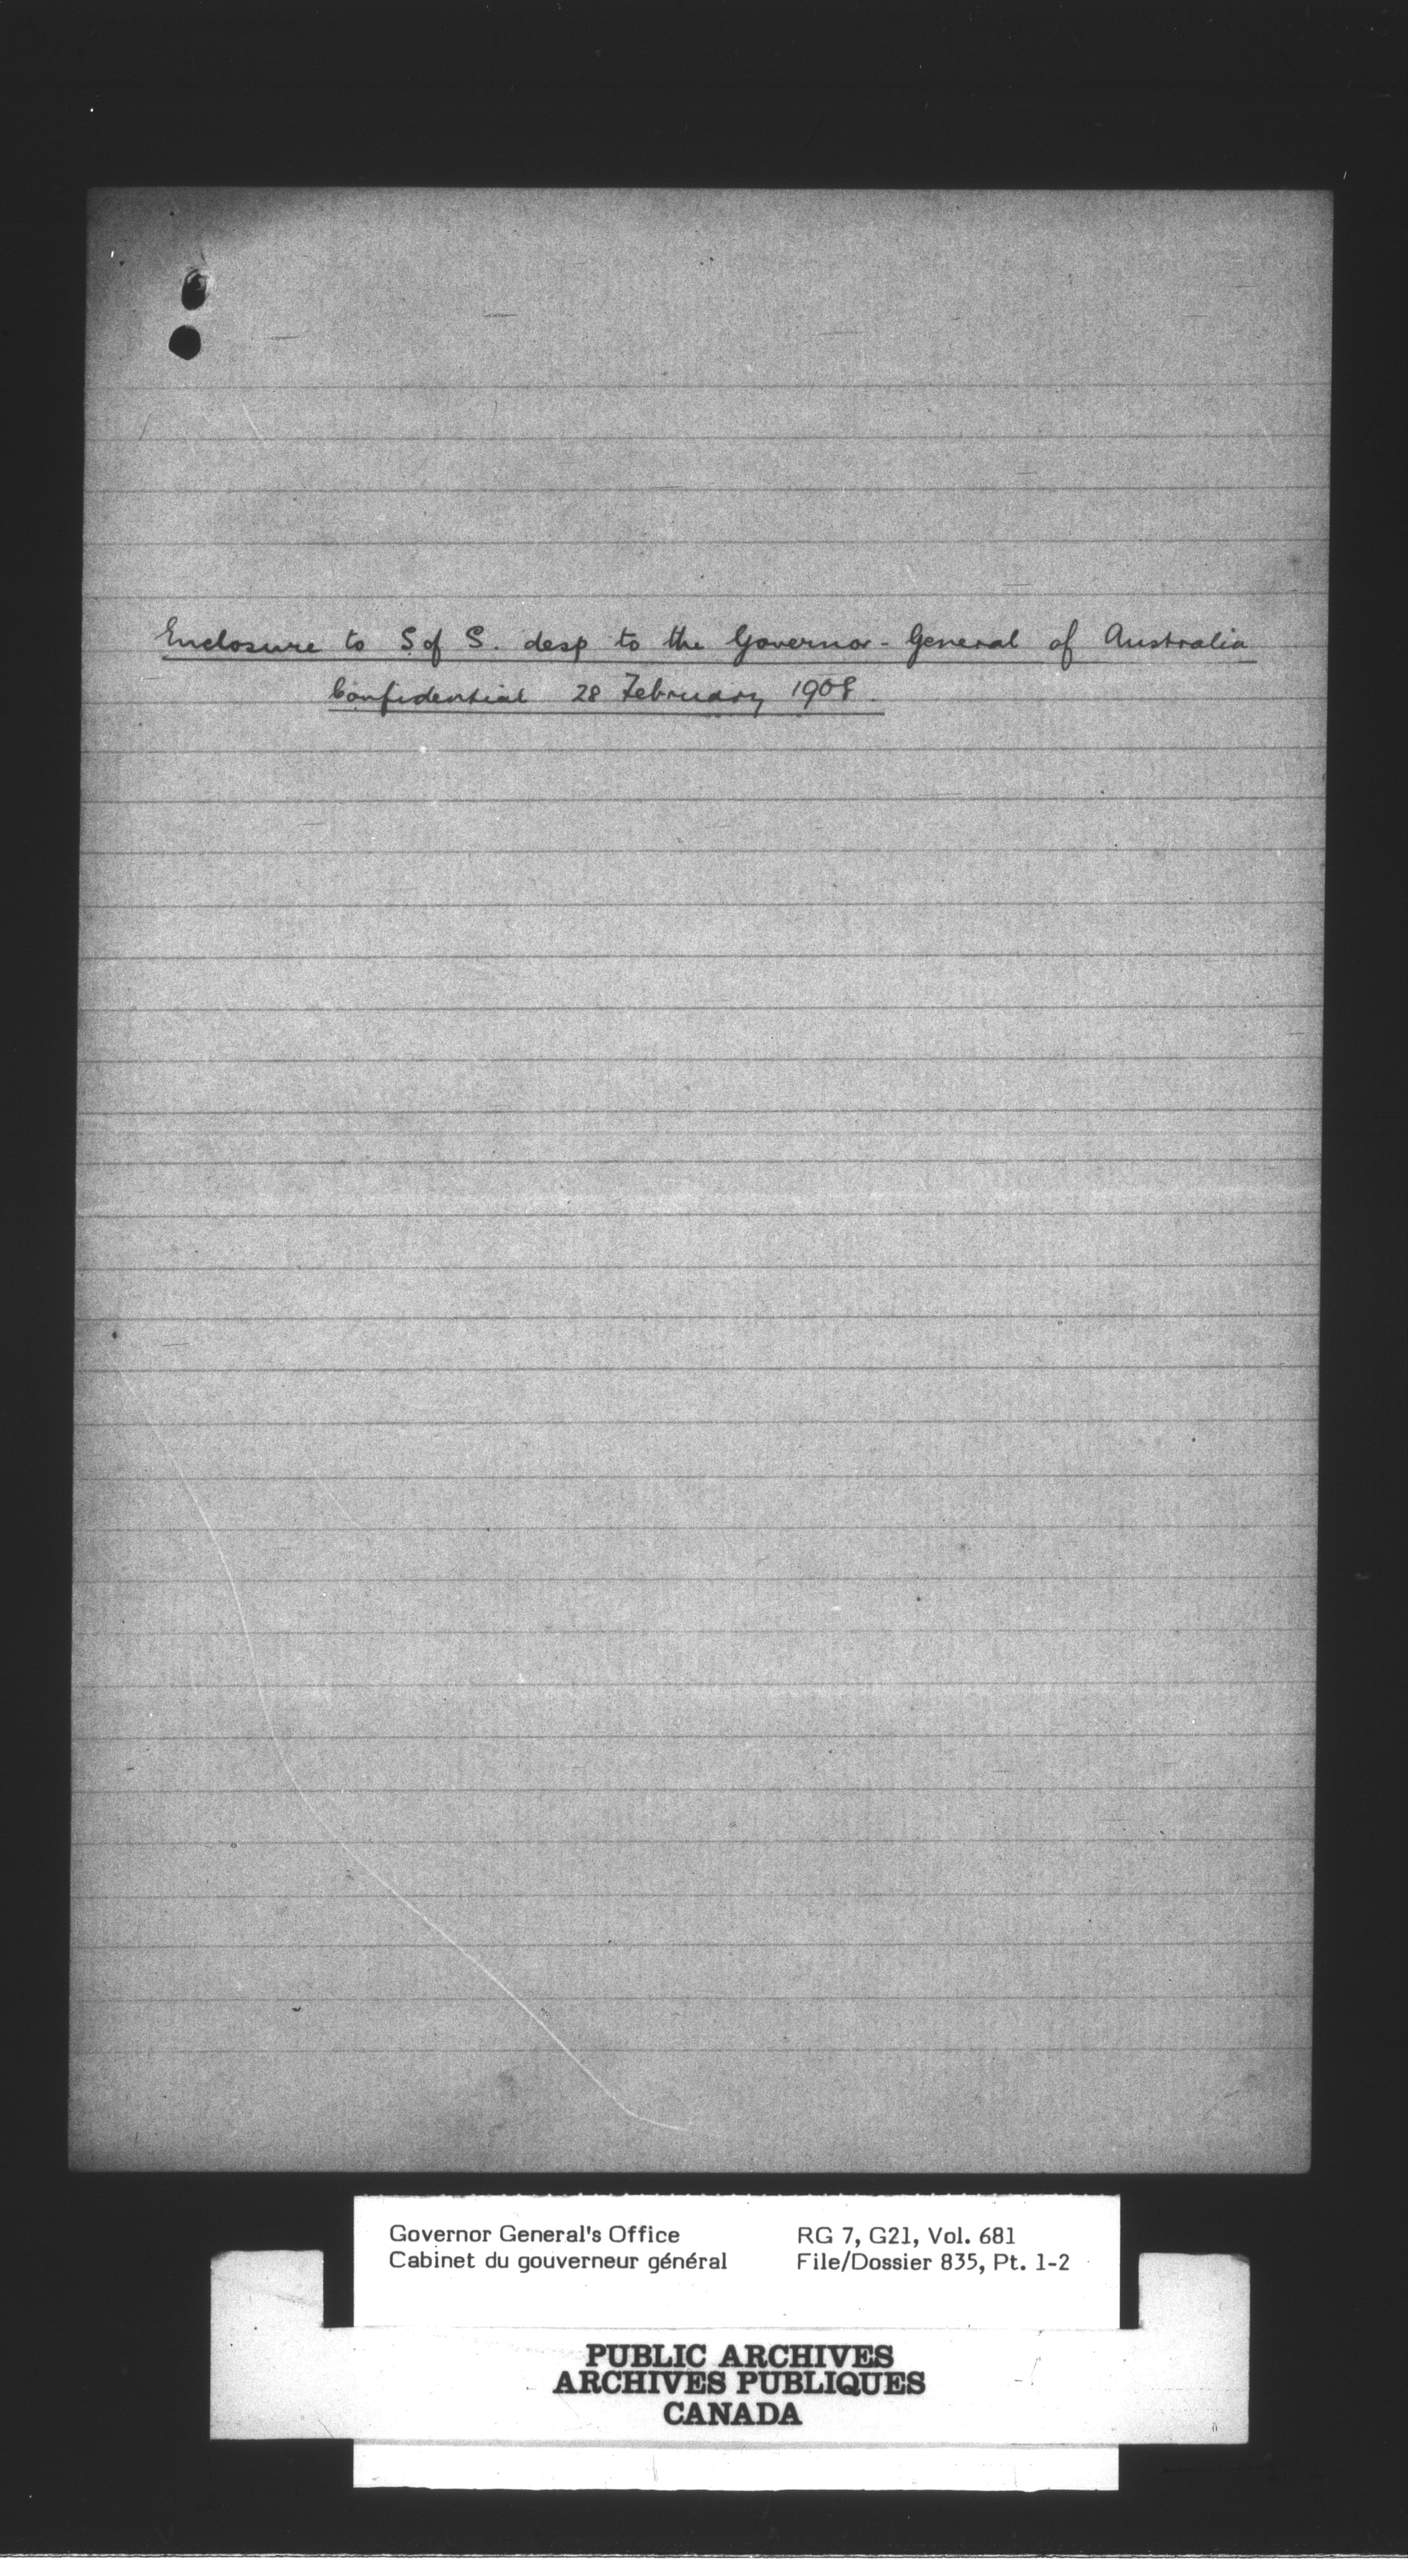 Enclosure to S of S. desp to the Governor-General of Australia
Confidential 28 February 1908.
Governor General's Office
Cabinet du gouverneur général
RG 7, G21, Vol. 681
File/Dossier 835, Pt. 1-2
PUBLIC ARCHIVES
ARCHIVES PUBLIQUES
CANADA